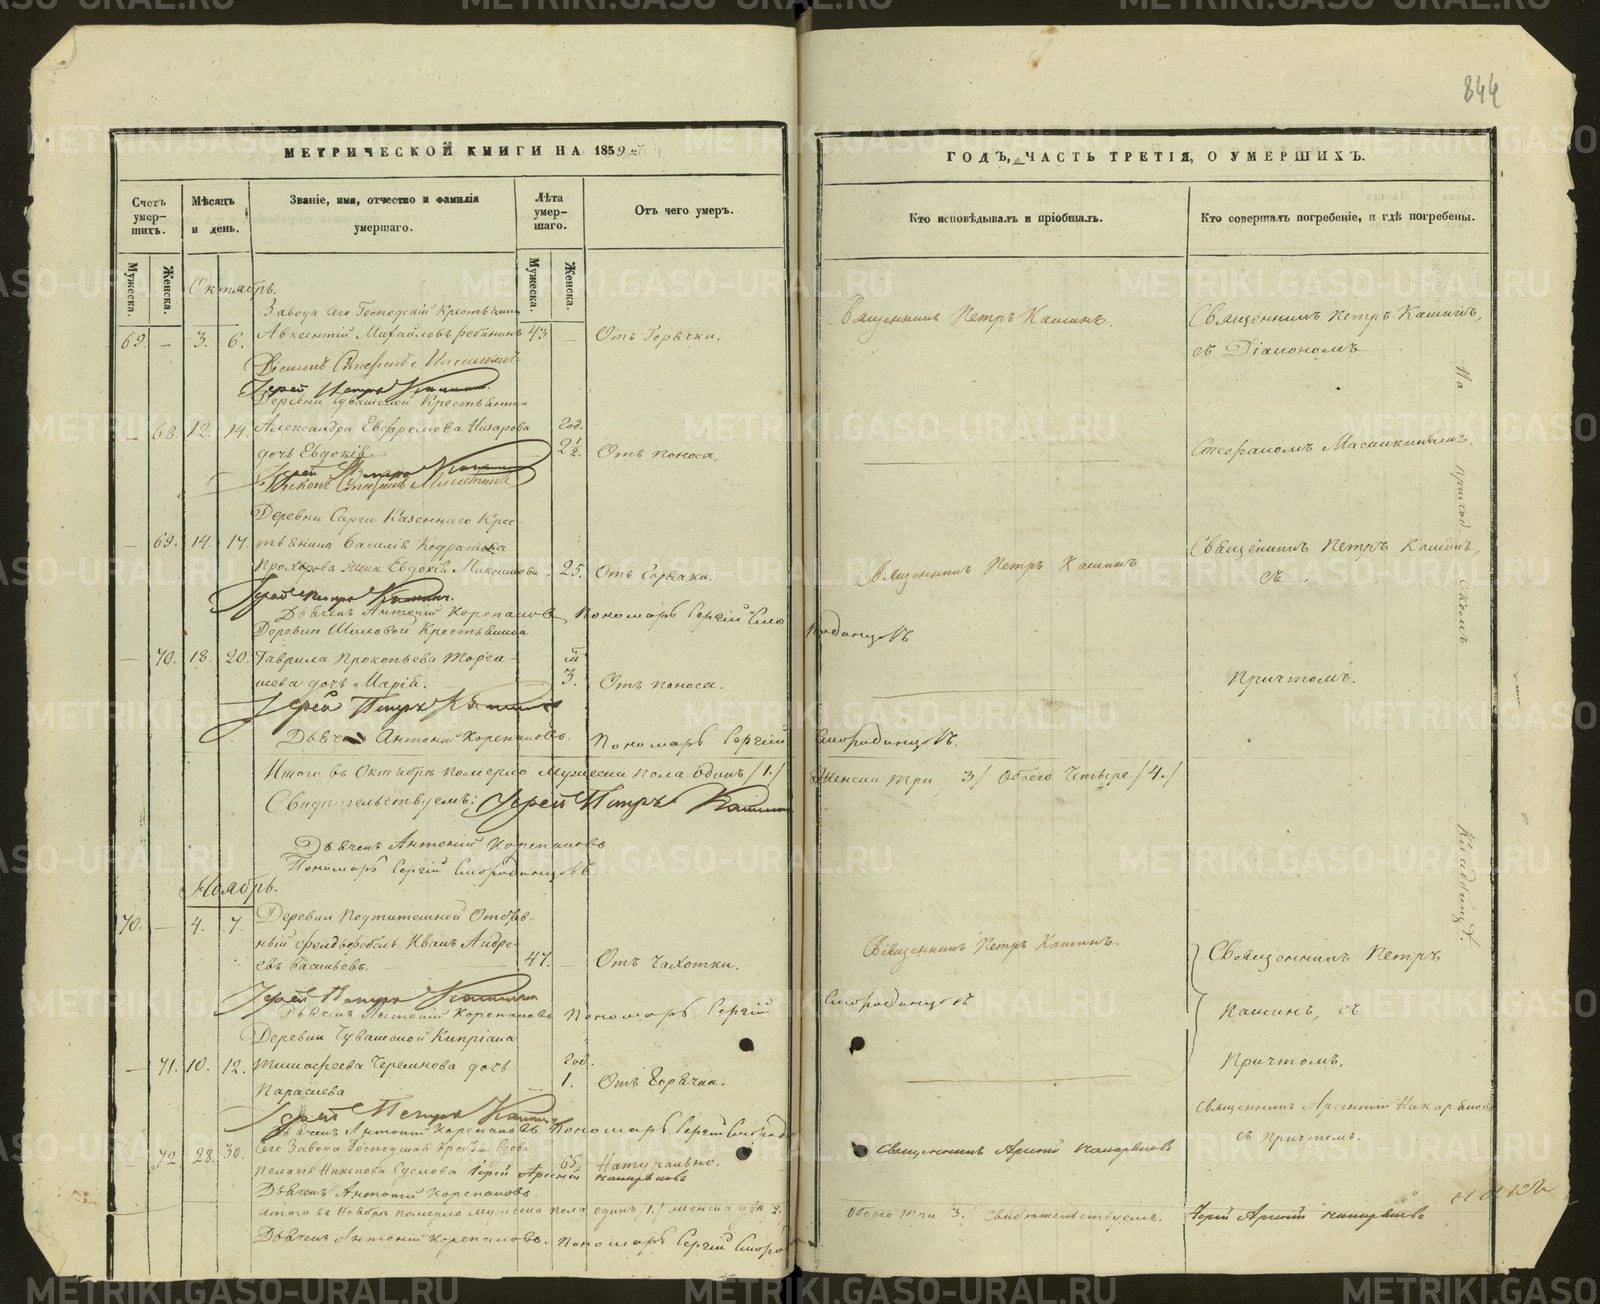 844
МЕТРИЧЕСКОЙ КНИГИ НА 1859й
ГОДЪ, ЧАСТЬ ТРЕТІЯ, О УМЕРШИХЪ.
Счетъ умер-шихъ.
Мѣсяцъ и день.
Званіе, имя, отчество и фамилія умершаго.
Лѣта умер-шаго.
Отъ чего умеръ.
Кто исповѣдывалъ и пріобщалъ.
Кто совершалъ погребеніе, и гдѣ погребены.
Мужеска. Женска.
Мужеска. Женска.
Октябрь.
Завода сего Господскій Крестьянин
69. — 3. 6. Авксентій Михайловъ Рябининъ 43 — Отъ Горячки.
Священникъ Петръ Кашинъ.
Священникъ Петръ Кашинъ,
съ Діакономъ
Діаконъ Стефанъ
Іерей Петръ Кашинъ.
Деревни Чувашской Крестьянина
— 68. 12. 14. Александра Евфремова Назарова
год.
дочь Евдокія. 2½. Отъ поноса.
Стефаномъ
Іерей Петръ Кашинъ
Діаконъ Стефанъ
Деревни Сарги Казеннаго Крес-
— 69. 14. 17. тьянина Василія Кодратова
Прохорова жена Евдокія Максимова. 25. Отъ Горячки.
Священникъ Петръ Кашинъ
Священникъ Петръ Кашинъ,
съ
Іерей Петръ Кашинъ.
Дьячекъ Антоній Корепановъ Пономарь Сергій Смородинцовъ
Деревни Шиловой Крестьянина
— 70. 18. 20. Гаврила Прокопьева Торга-
шева дочь Марія. 3. Отъ поноса.
Причтомъ.
Іерей Петръ Кашинъ
Дьячекъ Антоній Корепановъ. Пономарь Сергій Смородинцовъ.
Итого въ Октябрѣ померло Мужеска пола одинъ /1./ Женска три /3/ Обоего Четыре /4./
Свидѣтельствуемъ: Іерей Петръ Кашинъ
Дьячекъ Антоній Корепановъ
Пономарь Сергій Смородинцовъ.
Ноябрь.
70. — 4. 7. Деревни Подтитешной Отстав-
ный фелдфебель Иванъ Андре-
евъ Васильевъ. 47. — Отъ Чахотки.
Священникъ Петръ Кашинъ.
Священникъ Петръ
Іерей Петръ Кашинъ
Дьячекъ Антоній Корепановъ Пономарь Сергій Смородинцовъ
Кашинъ, съ
Деревни Чувашской Кипріана
— 71. 10. 12. Тимофеева Черепнова дочь
год.
Параскева 1. Отъ Горячки.
Причтомъ.
Іерей Петръ Кашинъ
Дьячекъ Антоній Корепановъ Пономарь Сергій Смород
Священникъ Арсеній
съ Причтомъ.
Сего Завода Господская Крест. вдова
— 72. 28. 30. Пелагія Никонова Суслова 65. Натурально.
Священникъ Арсеній
Іерей Арсеній
Дьячекъ Антоній Корепановъ.
Итого въ Ноябрѣ померло Мужеска пола одинъ /1./ Женска два /2./ Обоего три /3./ Свидѣтельствуемъ. Іерей Арсеній
Дьячекъ Антоній Корепановъ. Пономарь Сергій Смород
На Приходскомъ Кладбищѣ.
METRIKI.GASO-URAL.RU